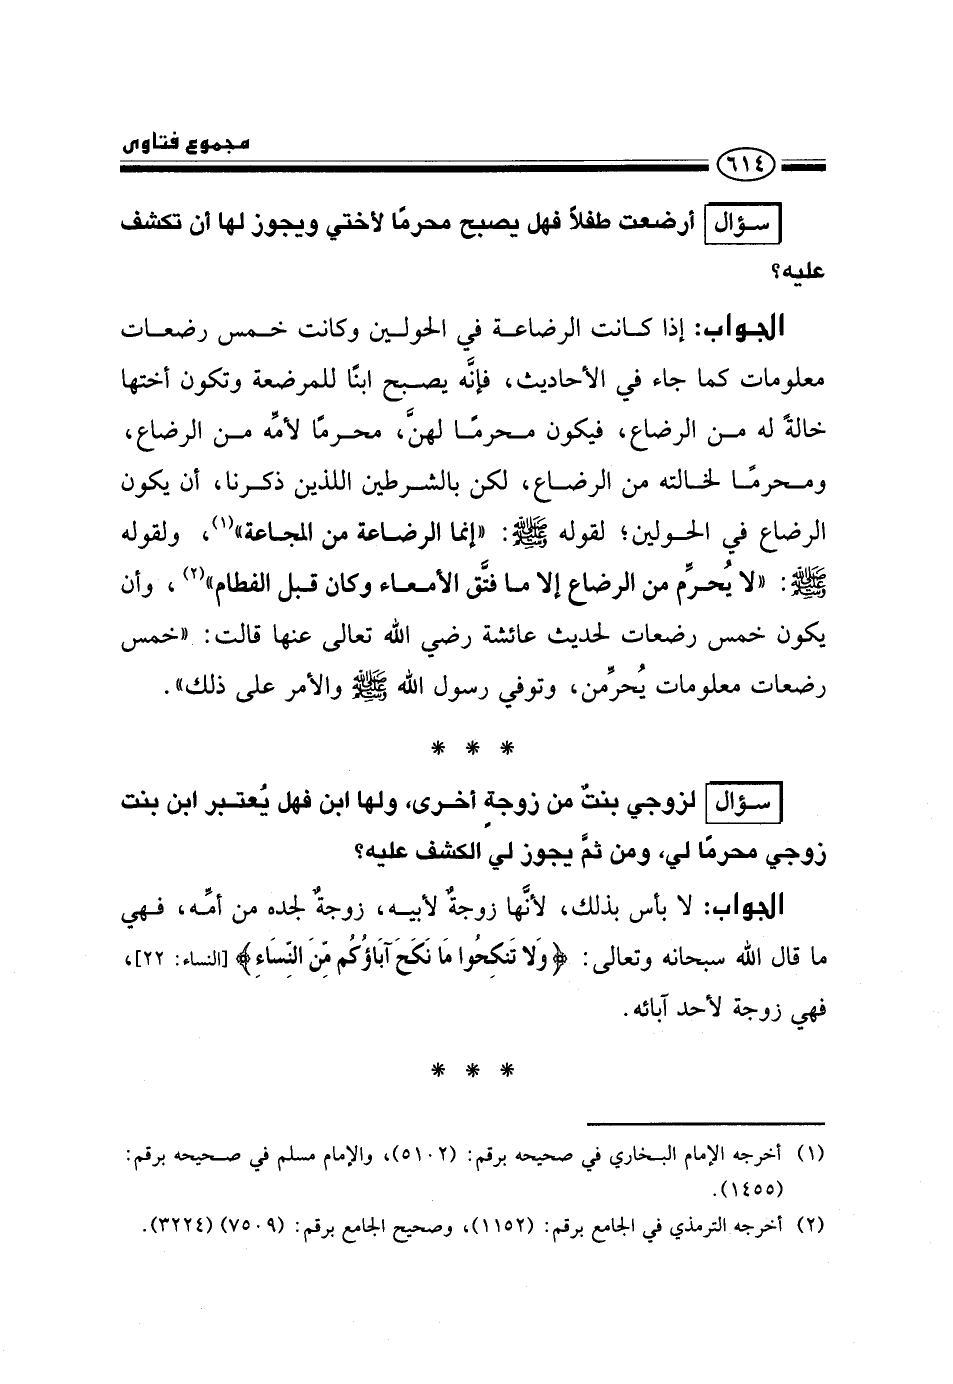 مجموع فتاوى
٦١٤
سؤال أرضعت طفلاً فهل يصبح محرمًا لأختي ويجوز لها أن تكشف
عليه؟
الجواب: إذا كانت الرضاعة في الحولين وكانت خمس رضعات
معلومات كما جاء في الأحاديث، فإنَّه يصبح ابنًا للمرضعة وتكون أختها
خالةً له من الرضاع، فيكون محرمًا لهنَّ، محرمًا لأمِّه من الرضاع،
ومحرمًا لخالته من الرضاع، لكن بالشرطين اللذين ذكرنا، أن يكون
الرضاع في الحولين؛ لقوله ﷺ: «إنما الرضاعة من المجاعة»(١)، ولقوله
ﷺ: «لا يُحرِّم من الرضاع إلا ما فتَّق الأمعاء وكان قبل الفطام»(٢)، وأن
يكون خمس رضعات لحديث عائشة رضي الله تعالى عنها قالت: «خمس
رضعات معلومات يُحرِّمن، وتوفي رسول الله ﷺ والأمر على ذلك».
* * *
سؤال لزوجي بنتٌ من زوجةٍ أخرى، ولها ابن فهل يُعتبر ابن بنت
زوجي محرمًا لي، ومن ثمَّ يجوز لي الكشف عليه؟
الجواب: لا بأس بذلك، لأنَّها زوجةٌ لأبيه، زوجةٌ لجده من أمِّه، فهي
ما قال الله سبحانه وتعالى: ﴿وَلَا تَنكِحُوا مَا نَكَحَ آبَاؤُكُم مِّنَ النِّسَاءِ﴾ [النساء: ٢٢]،
فهي زوجة لأحد آبائه.
* * *
(١) أخرجه الإمام البخاري في صحيحه برقم: (٥١٠٢)، والإمام مسلم في صحيحه برقم:
(١٤٥٥).
(٢) أخرجه الترمذي في الجامع برقم: (١١٥٢)، وصحيح الجامع برقم: (٧٥٠٩) (٣٢٢٤).